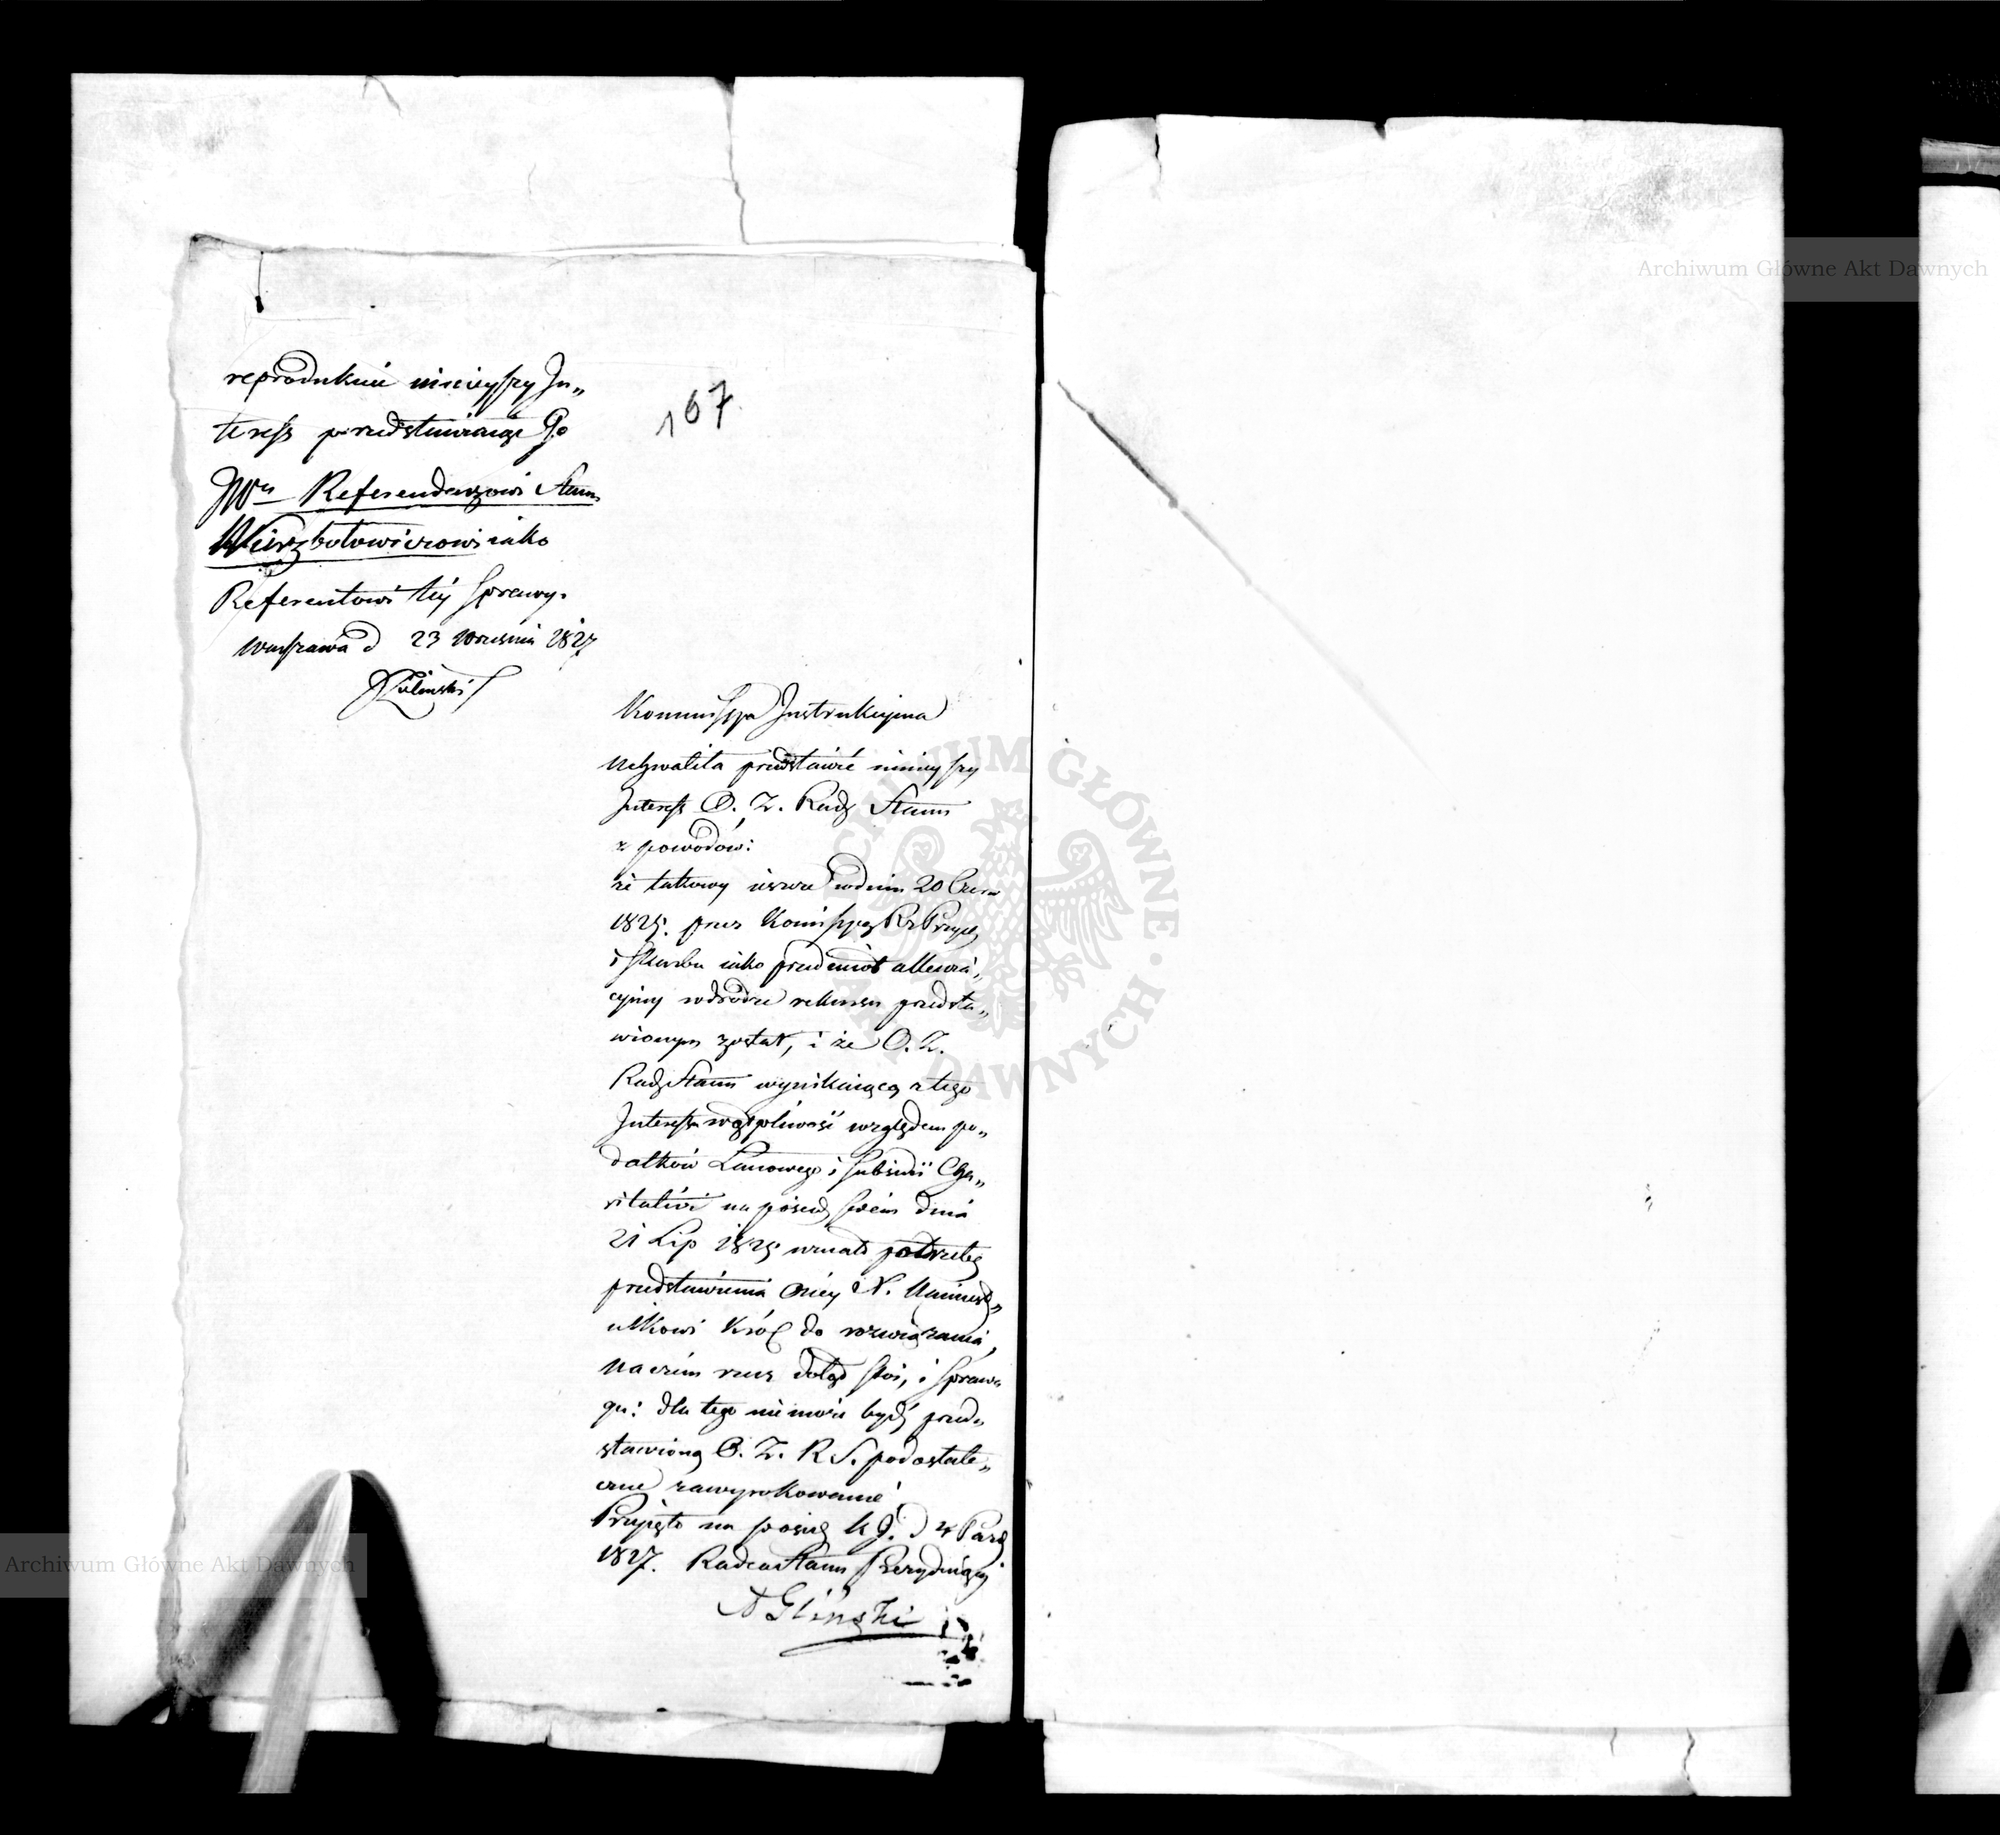 reprodukuie ninieyszy In„
teress przedstawiaiąc Go
JWu Referendarzowi Stanu
Wierzbołowiczowi iako
Referentowi téy Sprawy.
Warszawa d 23 Września 1827
Zieliński
167
Kommissya Instrukcyina
uchwaliła przedstawić ninieyszy
Interess O. Z. Rady Stanu
z powodów:
że takowy ieszcze w dniu 20 Czerw
1825. przez Komissyą Rz Przych
i Skarbu iako przedmiot allewia„
cyiny w drodze rekursu przedsta„
wionym został, i że O. Z.
Rady Stanu wynikaiącą z tego
Interessu wątpliwość względem po„
datków Łanowego i Subsidii Cha„
ritativi na posiedz swém dnia
21 Lip 1825 uznało potrzebę
przedstawienia oney N. Namiestn„
ikowi Król do rozwiązania,
na czém rzecz dotąd stoi, i sprawa
ga: dla tego nie może bydź przed„
stawioną O. Z. R S. pod ostate„
czne zawyrokowanie.
Przyięto na posiedz K J. d 4 Paźdz
1827. Radca Stanu Prezyduiący
A Gliński
ARCHIWUM GŁÓWNE AKT DAWNYCH
Archiwum Główne Akt Dawnych
Archiwum Główne Akt Dawnych